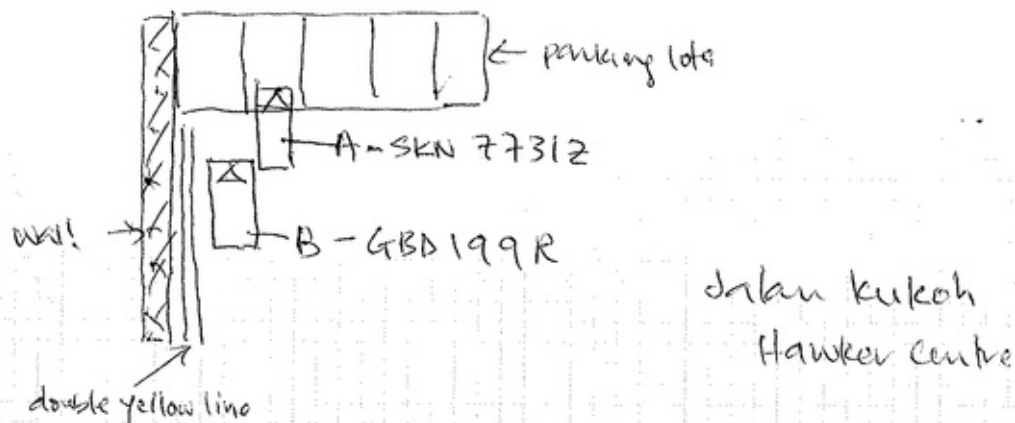 parking lots
A - SKN 7731Z
wall
B - GBD 199 R
Jalan Kukoh
Hawker Centre
double yellow line